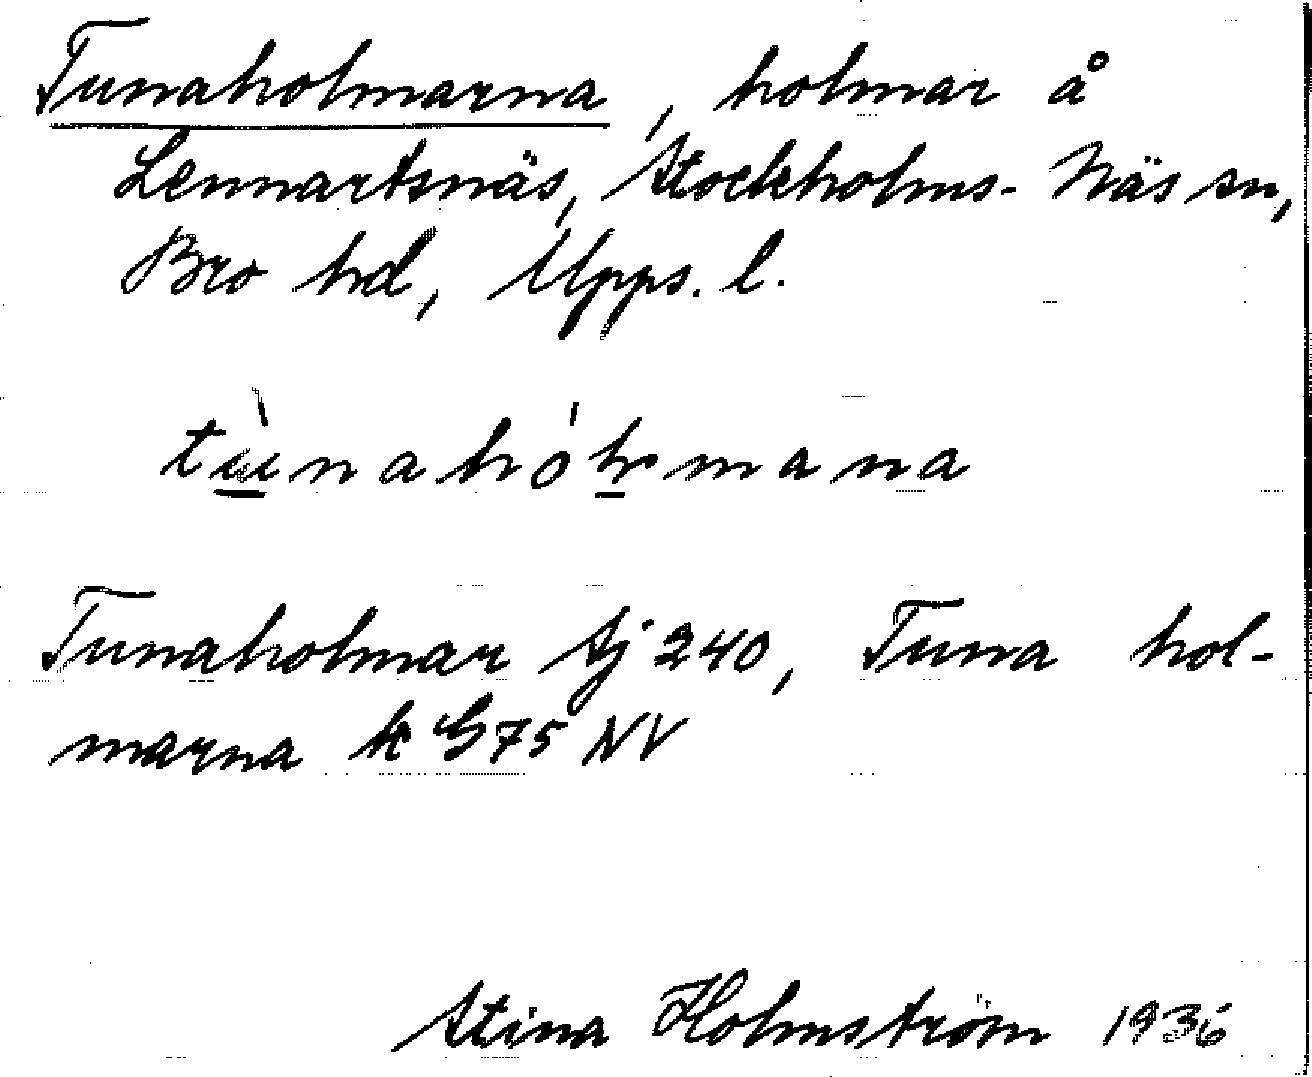 Tunaholmarna, holmar å
Lennartsnäs, Stockholms-Näs sn,
Bro hd, Upps. l.
Tunaholmar Sj 240, Tuna hol-
marna k G 75 NV
Stina Holmström 1936